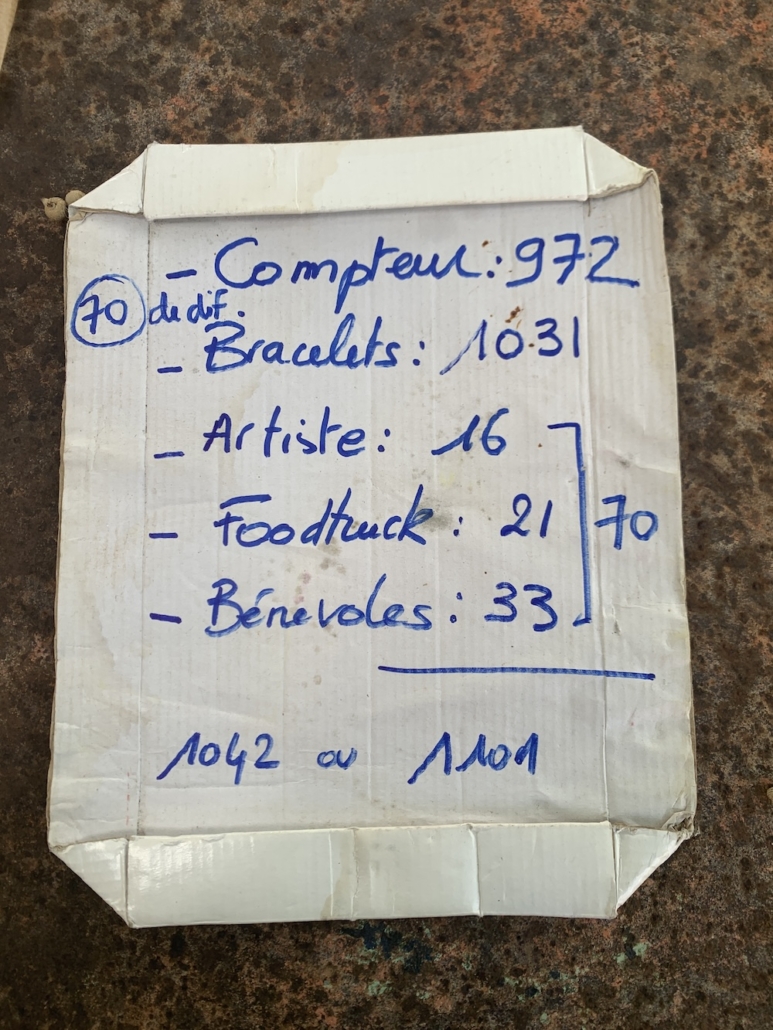 - Compteur : 972
70 de dif.
- Bracelets : 1031
- Artiste : 16
- Foodtruck : 21
70
- Bénevoles : 33
1042 ou 1101